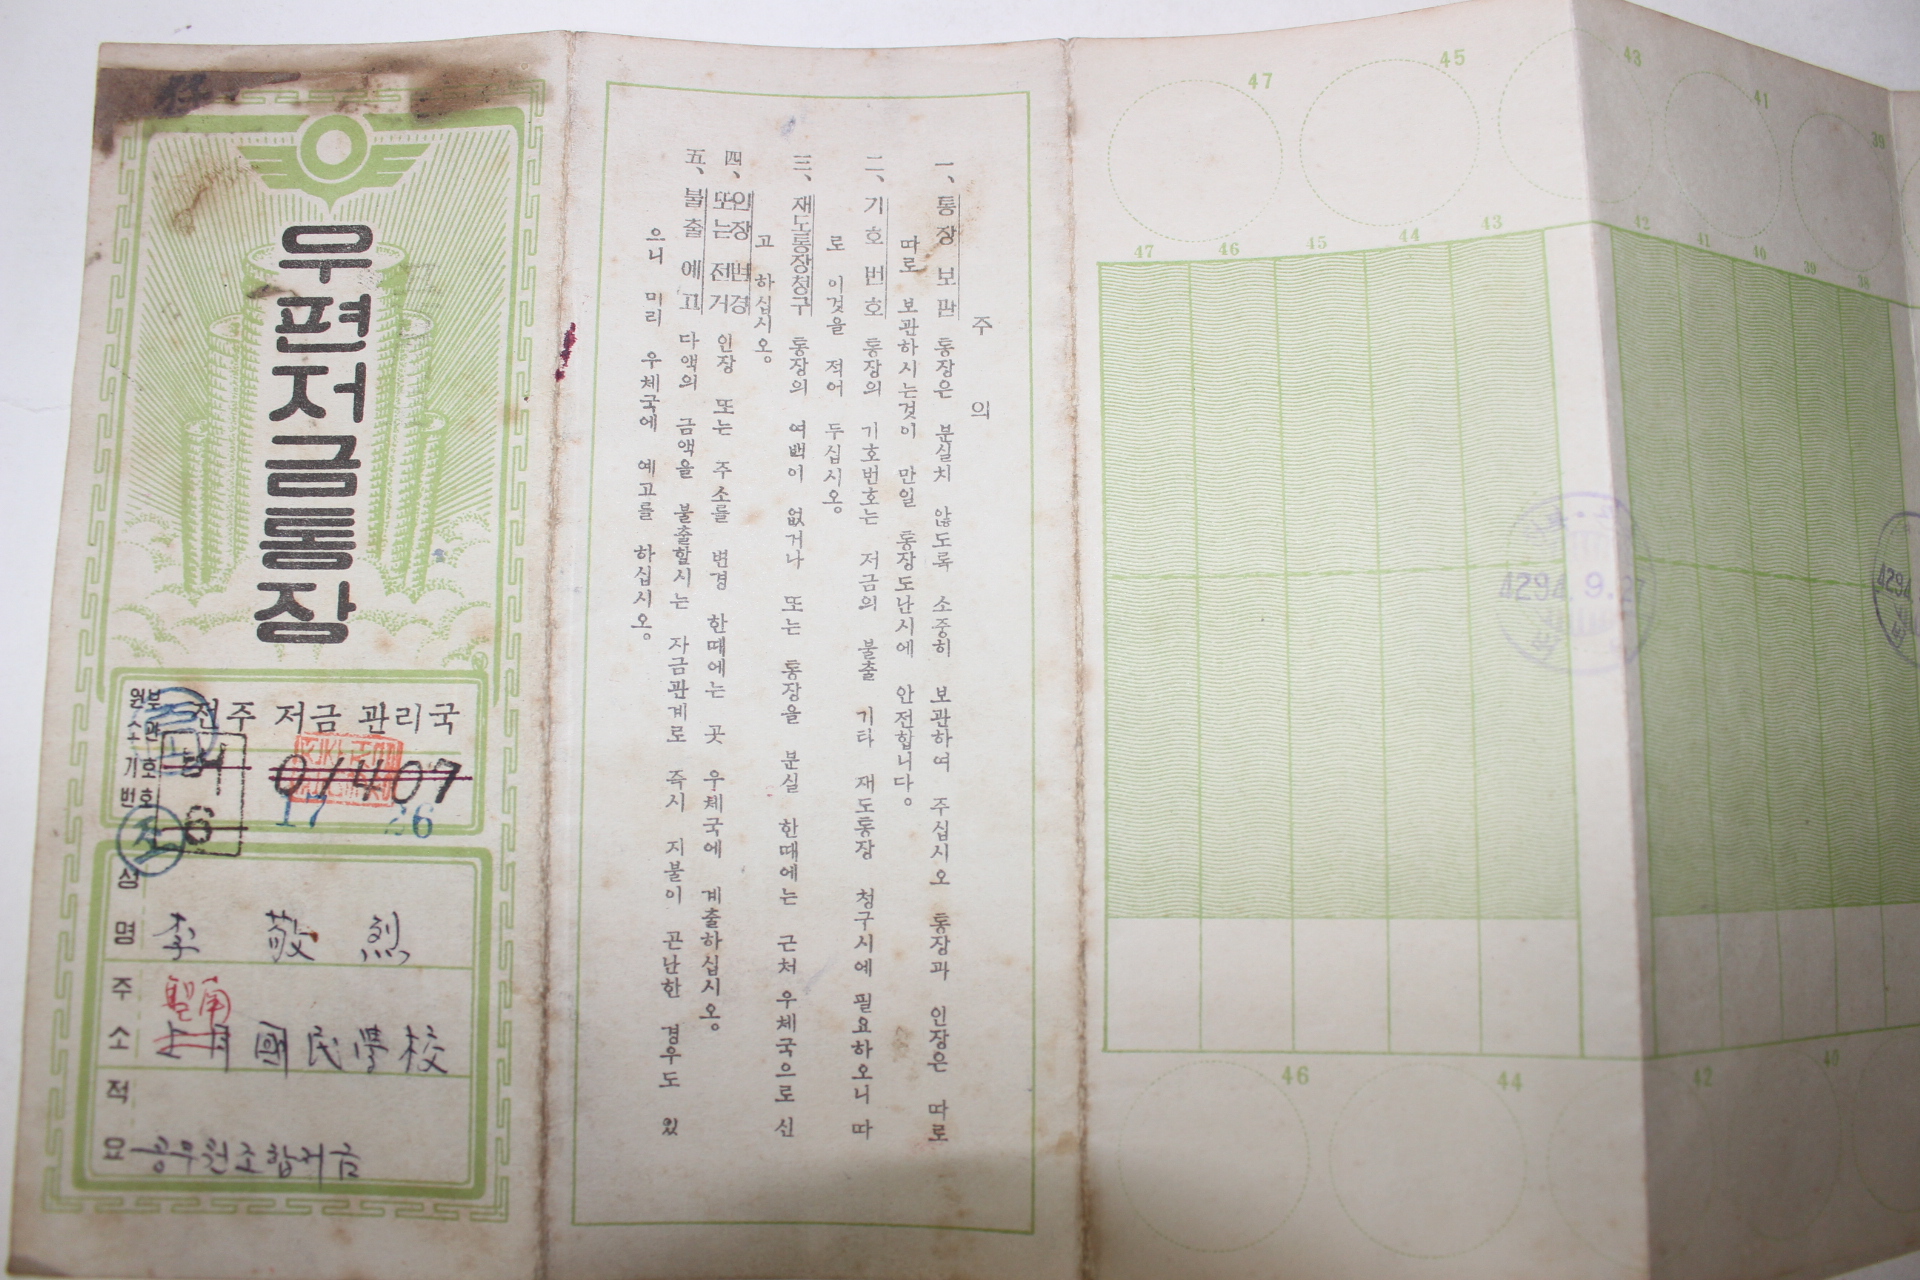 우편저금통장
원부
소관
전주 저금 관리국
기호
번호
01407
6
17
성명
李 敬 烈
주소
聖南
國民學校
적요
공무원조합저금
주의
一、통장 보관 통장은 분실치 않도록 소중히 보관하여 주십시오 통장과 인장은 따로
따로 보관하시는것이 만일 통장도난시에 안전합니다。
二、기호 번호 통장의 기호번호는 저금의 불출 기타 재도통장 청구시에 필요하오니 따
로 이것을 적어 두십시오。
三、재도통장청구 통장의 여백이 없거나 또는 통장을 분실 한때에는 근처 우체국으로 신
고 하십시오。
四、인장 변경 또는 전거 인장 또는 주소를 변경 한때에는 곳 우체국에 계출하십시오。
五、불출 예고 다액의 금액을 불출할시는 자금관계로 즉시 지불이 곤난한 경우도 있
으니 미리 우체국에 예고를 하십시오。
47 45 43 41 39
47 46 45 44 43 42 41 40 39 38
4294.9.27
4294
46 44 42 40